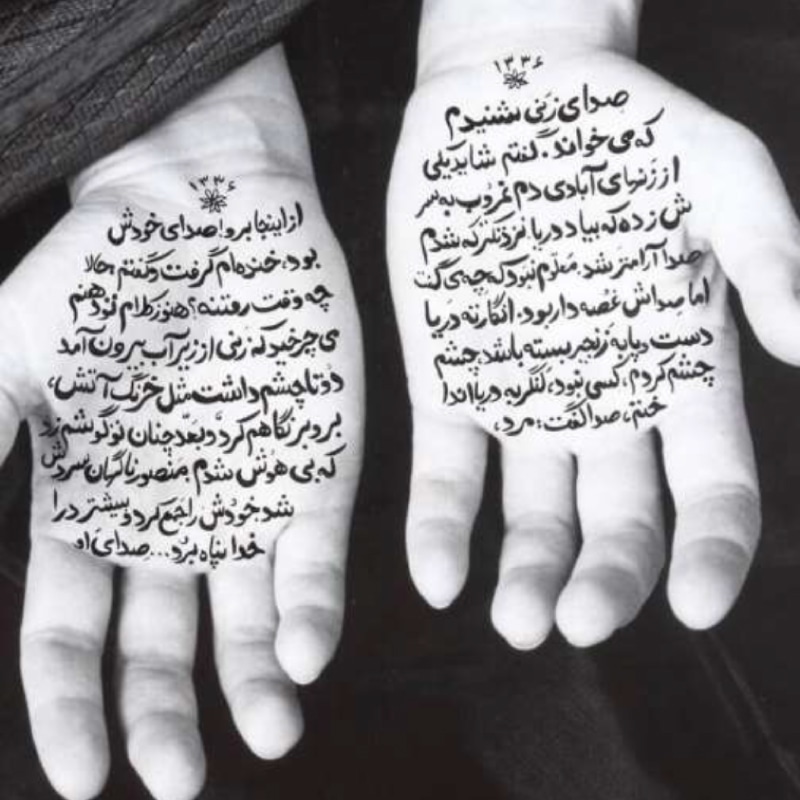 ۱۳۳۶
صدای زنی شنیدم
که می خواند. گفتم شاید یکی
از زنهای آبادی دم غروب به سر
ش زده که بیاد دریا. نزدیکتر که شدم
صدا آرامتر شد. معلوم نبود که چه می گفت
اما صداش غصه دار بود. انگار نه دریا
دست و پا به زنجیر بسته باشد. چشم
چشم کردم، کسی نبود، لنگر به دریا اندا
ختم، صدا گفت: مرد،
۱۳۳۶
از اینجا برو! صدای خودش
بود. خنده ام گرفت و گفتم حالا
چه وقت رفتنه؟ هنوز کلام تو دهنم
می چرخید که زنی از زیر آب بیرون آمد
دو تا چشم داشت مثل خرنگ آتش،
بر و بر نگاهم کرد و بعد چنان تو گوشم زد
که بی هوش شدم. منصور ناگهان سردش
شد خودش را جمع کرد و بیشتر در ا
خدا پناه برد... صدای او